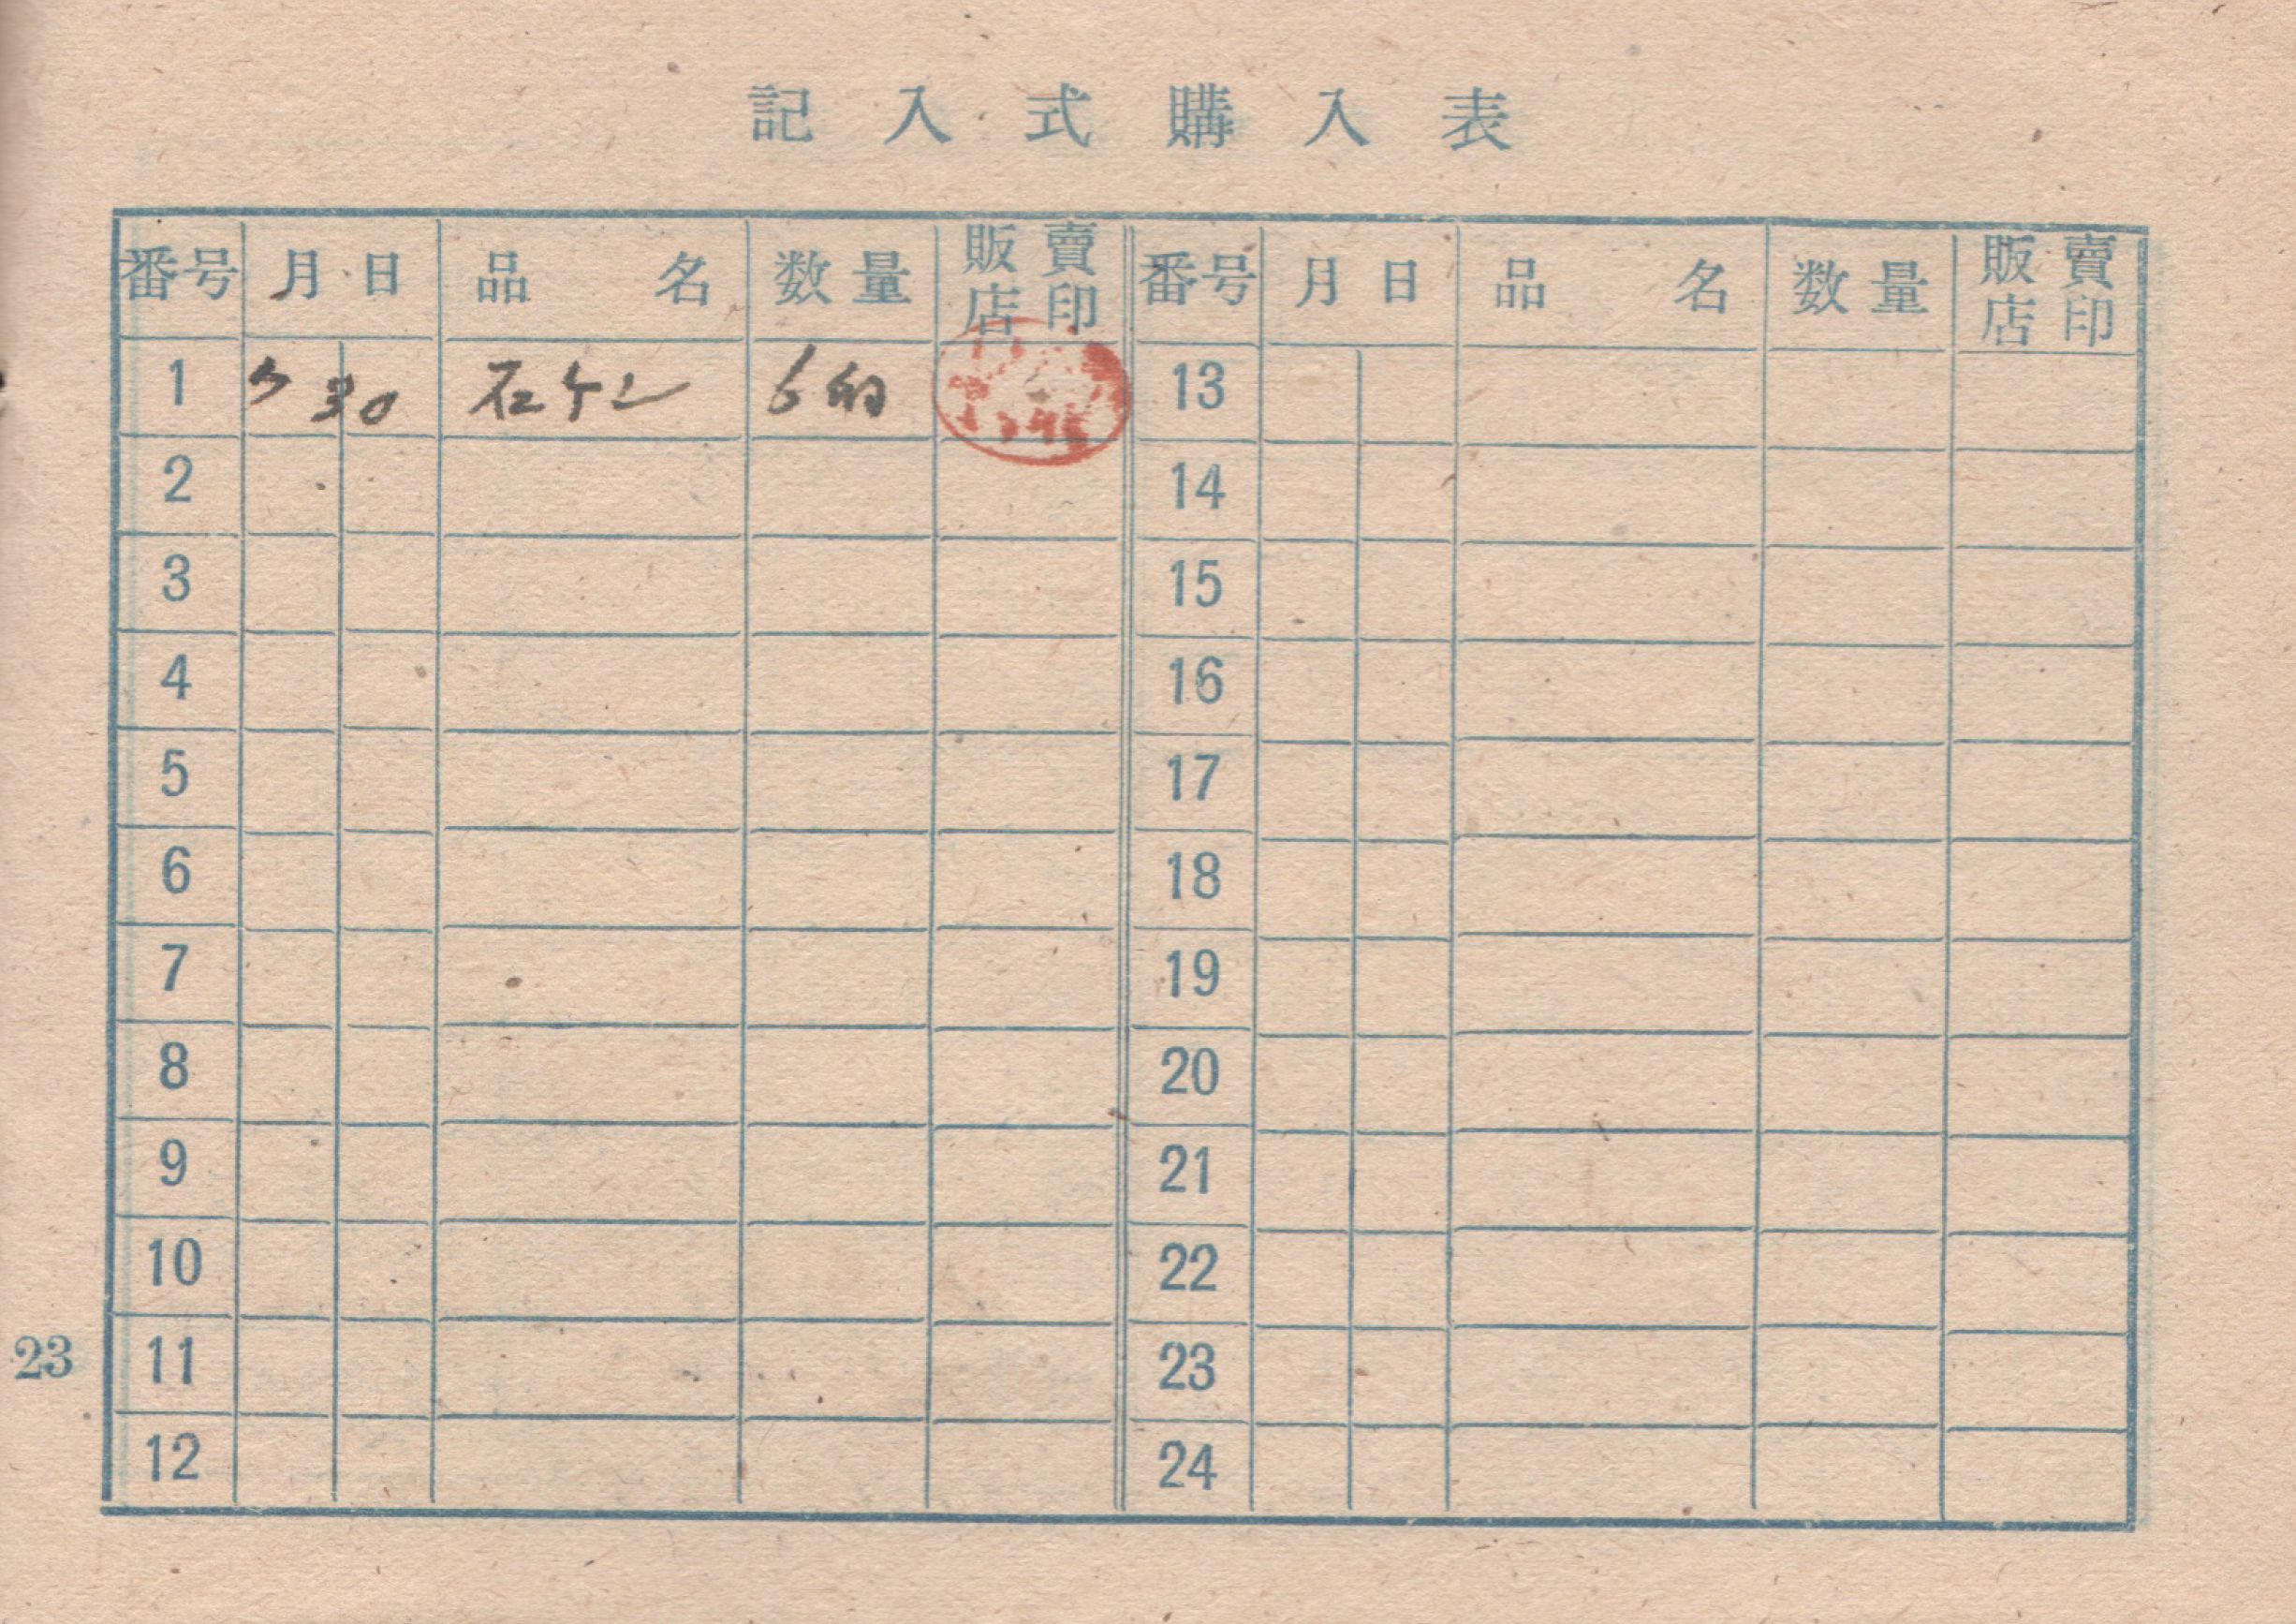 記入式購入表
番号 月日 品名 数量 販賣店印 番号 月日 品名 数量 販賣店印
1 30 石ケン 6 13
2 14
3 15
4 16
5 17
6 18
7 19
8 20
9 21
10 22
11 23
12 24
23